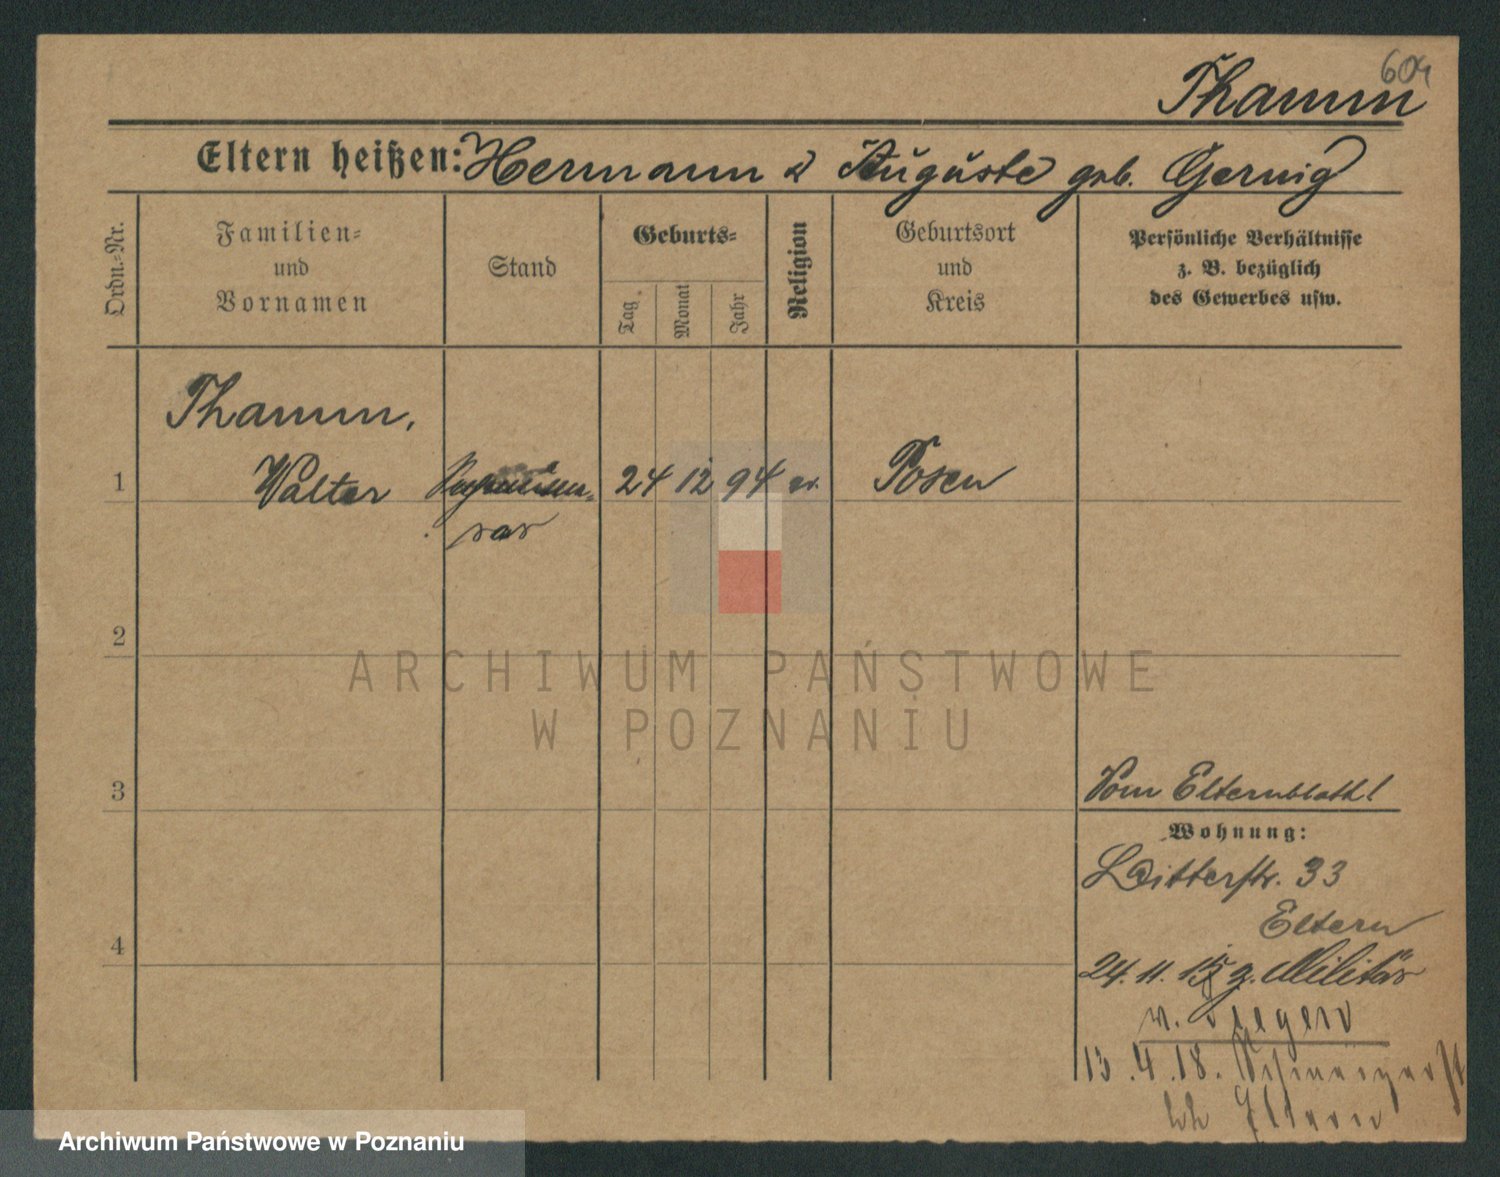 604
Thamm
Eltern heißen: Hermann u Auguste geb. Gernig
Ordn.-Nr.
Familien-
und
Vornamen
Stand
Geburts-
Tag.
Monat
Jahr
Religion
Geburtsort
und
Kreis
Persönliche Verhältnisse
z. B. bezüglich
des Gewerbes usw.
Thamm,
1 Walter 24 12 94 ev. Posen
2
3
4
Vom Elternblatt!
Wohnung:
Ritterstr. 33
Eltern
24. 11. 15 z. Militär
n.
13.4.18.
bei Eltern
ARCHIWUM PAŃSTWOWE
W POZNANIU
Archiwum Państwowe w Poznaniu